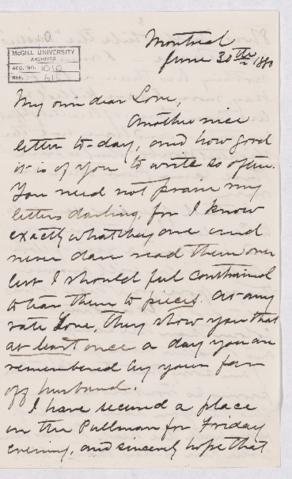 McGILL UNIVERSITY
ARCHIVES
ACC. NO. 1010
REF.
Montreal
June 30th 18
My own dear Love,
Another nice
letter to-day, and how good
it is of you to write so often.
You need not praise my
letters darling, for I know
exactly what they are and
never dare read them over
lest I should feel constrained
to tear them to pieces. At any
rate Love, they show you that
at least once a day you are
remembered by your far
off husband.
I have secured a place
on the Pullman for Friday
evening, and sincerely hope that